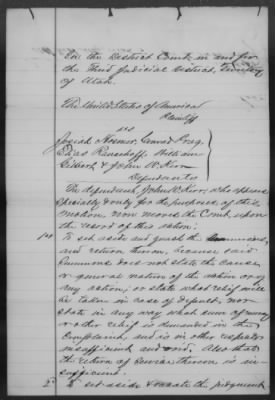 In the District Court in and for
the Third Judicial District, Territory
of Utah.
The United States of America
Plaintiff
vs
Josiah Hosmer, Conrad Prag,
Elias Ransohoff, William
Gilbert & John W. Kerr
Defendants
The defendant, John W. Kerr, who appears
specially & only for the purposes of this
motion, now moves the Court, upon
the record of this action:
1st To set aside and quash the Summons,
and return thereon, because said
Summons does not state the cause
or general nature of the action or of
any action, or state what relief will
be taken in case of default, nor
state in any way which sum of money
or other relief is demanded in the
Complaint, and is in other respects
insufficient and void. Also that
the return of Service thereon is in-
sufficient.
2d To set aside & vacate the judgment